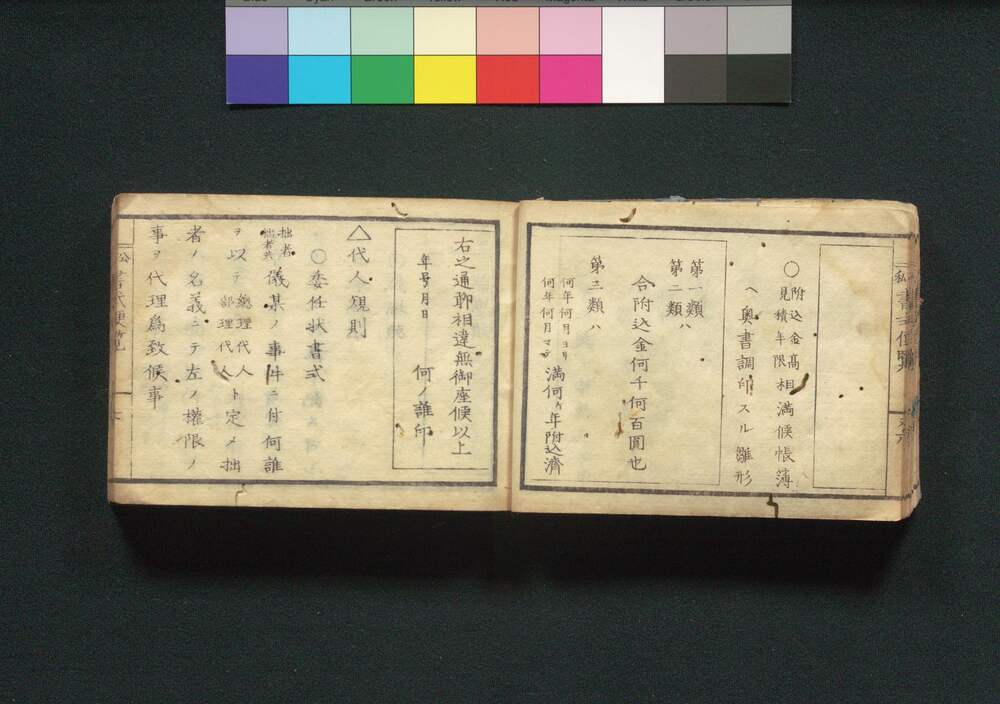 ○附込金髙見積年限相満候帳簿
ヘ奥書調印スル雛形
第一類
第二類ハ
合附込金何千何百圓也
第三類ハ
何年何月ヨリ何年何月マテ満何ヶ年附込濟
右之通聊相違無御座候以上
年号月日
何ノ誰印
△代人規則
○委任状書式
拙者儀某ノ事件ニ付何誰
ヲ以テ総理代人部理代人ト定メ拙
者ノ名義ニテ左ノ權限ノ
事ヲ代理爲致候事